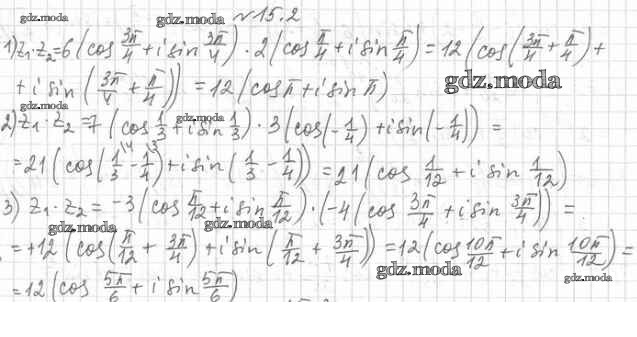 gdz.moda gdz.moda №15.2
1) z₁·z₂=6(cos 3π/4 + i sin 3π/4)·2(cos π/4 + i sin π/4) = 12(cos(3π/4 + π/4) +
+ i sin(3π/4 + π/4)) = 12(cos π + i sin π) gdz.moda
gdz.moda
2) z₁·z₂ = 7(cos 1/3 + i sin 1/3)·3(cos(-1/4) + i sin(-1/4)) = gdz.moda
= 21(cos(1/3 - 1/4) + i sin(1/3 - 1/4)) = 21(cos 1/12 + i sin 1/12)
3) z₁·z₂ = -3(cos π/12 + i sin π/12)·(-4(cos 3π/4 + i sin 3π/4)) =
gdz.moda gdz.moda
= +12(cos(π/12 + 3π/4) + i sin(π/12 + 3π/4)) = 12(cos 10π/12 + i sin 10π/12) =
gdz.moda gdz.moda
= 12(cos 5π/6 + i sin 5π/6)